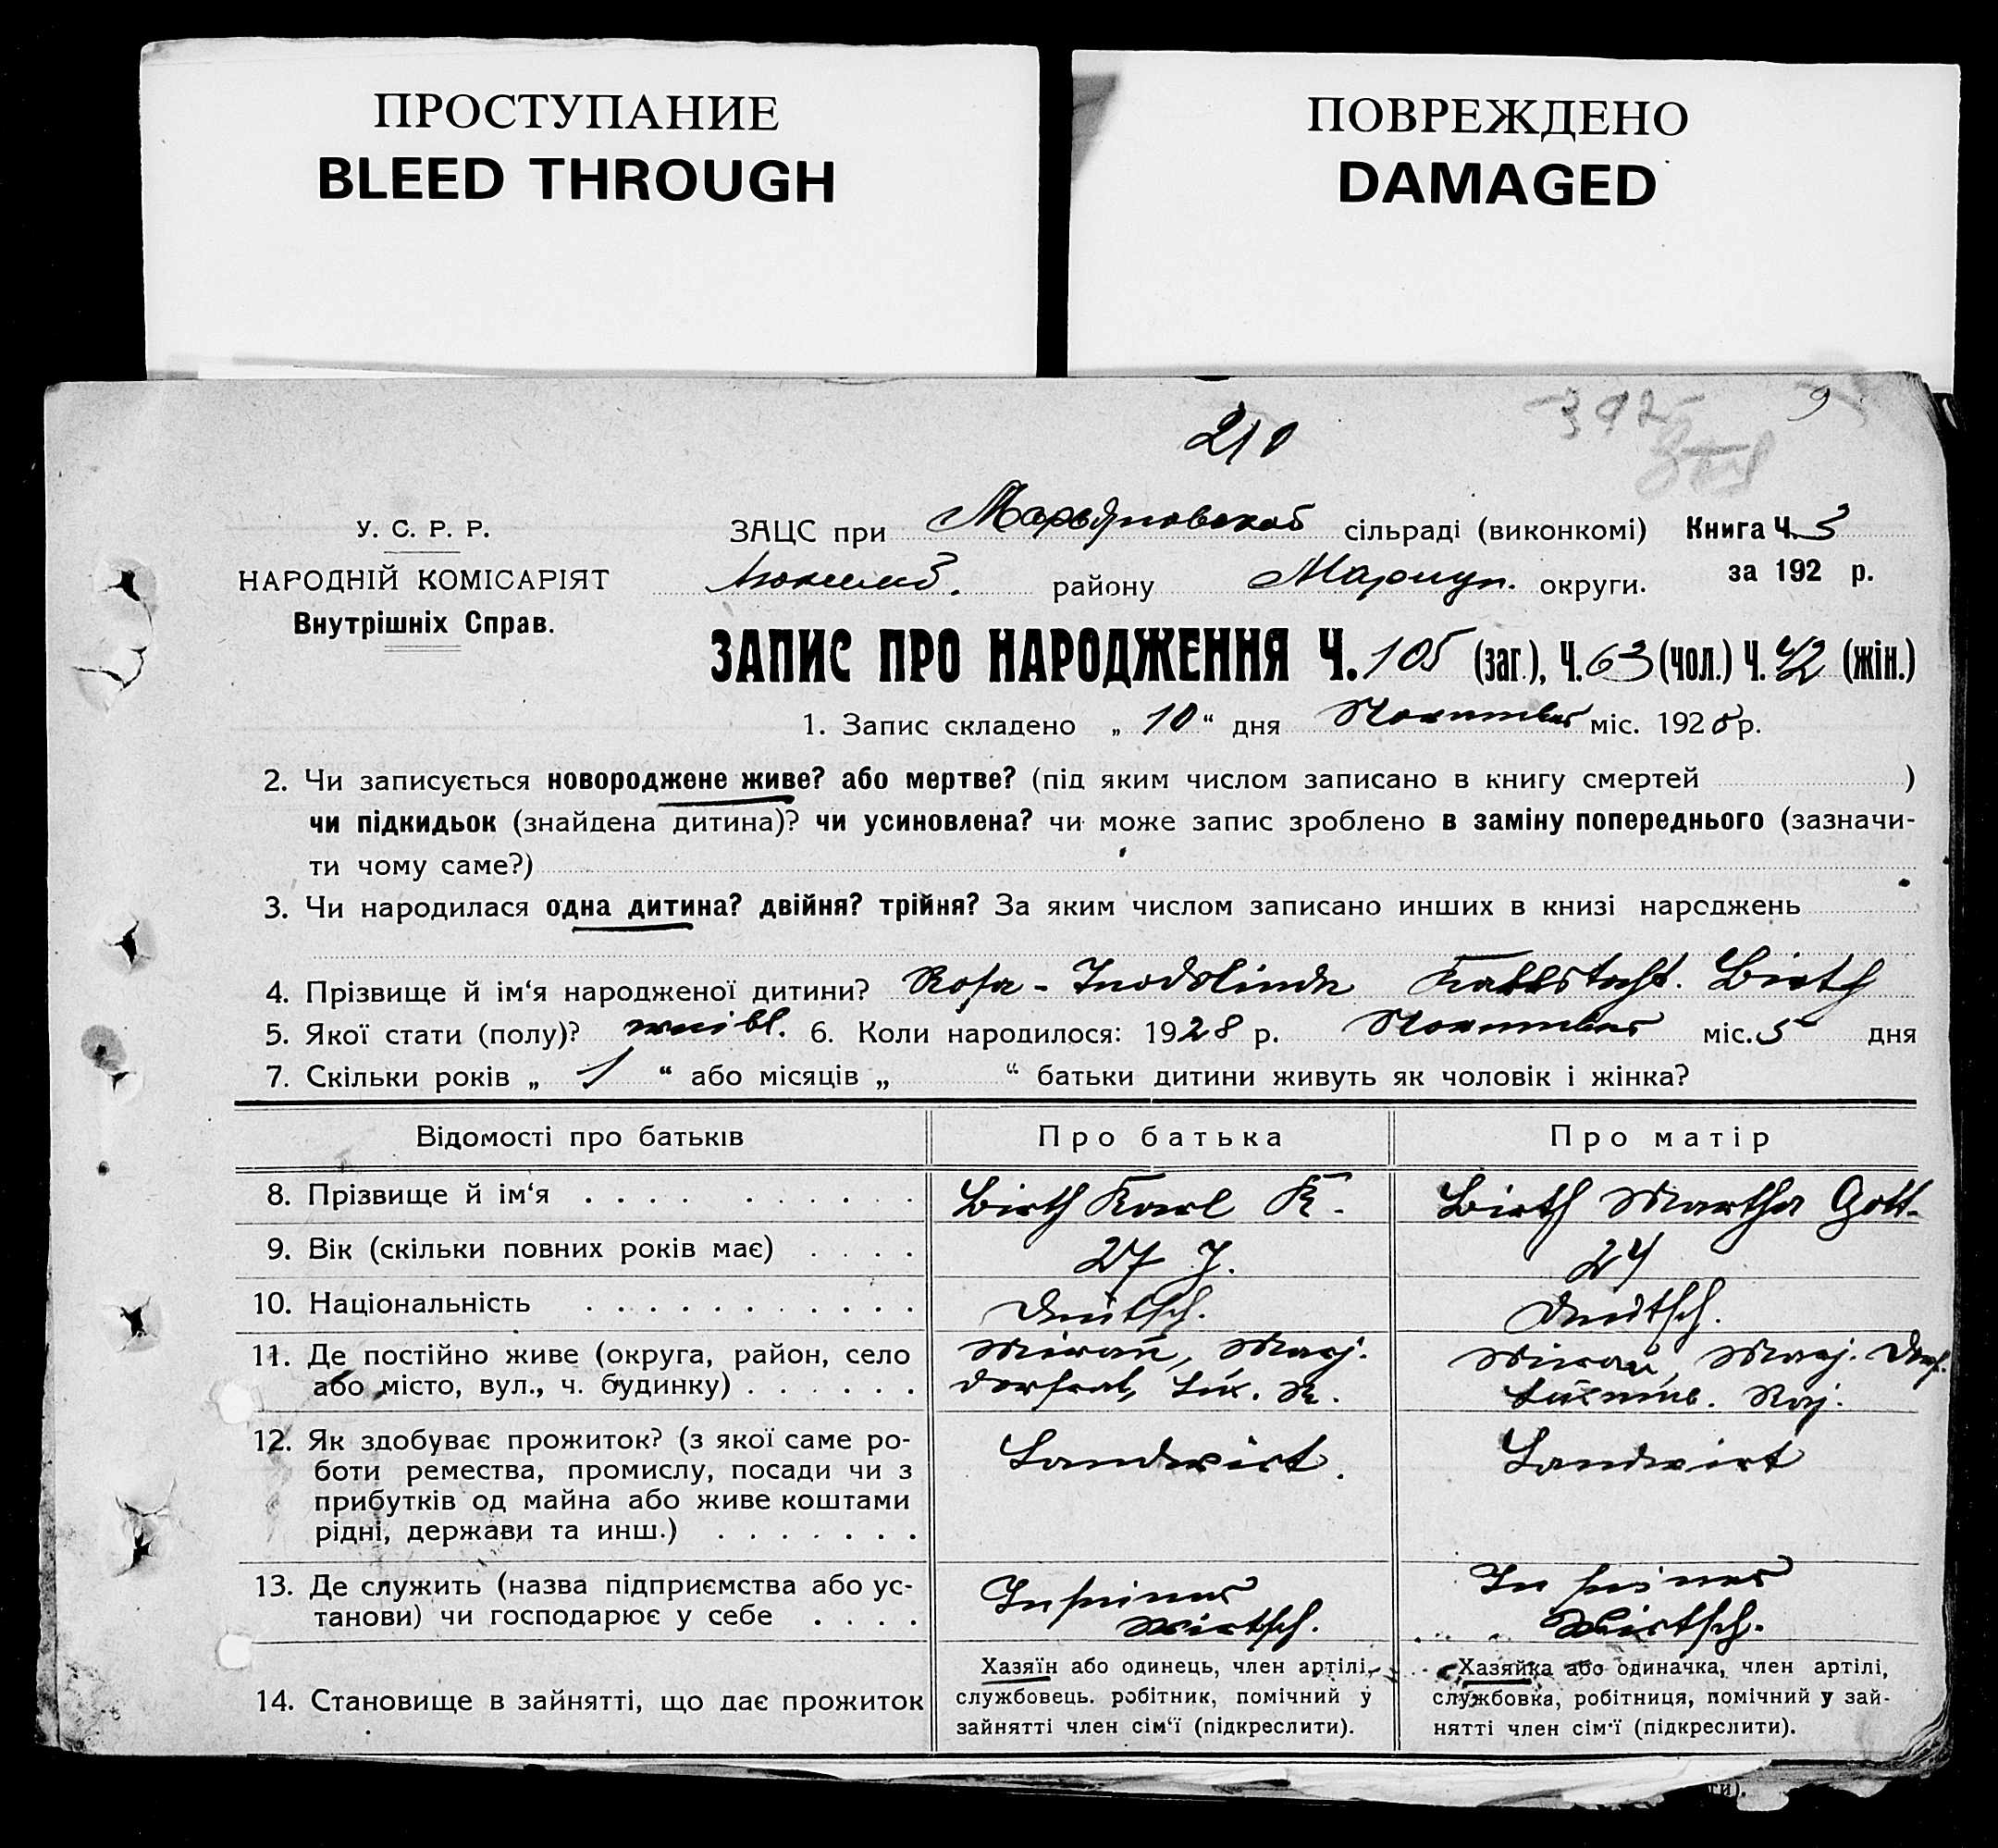 ПРОСТУПАНИЕ
BLEED THROUGH
ПОВРЕЖДЕНО
DAMAGED
210
392
9
У. С. Р. Р.
НАРОДНІЙ КОМІСАРІЯТ
Внутрішніх Справ.
ЗАЦС при Марьяновской сільраді (виконкомі) Книга Ч. 3
Люксемб. району Мариуп. округи. за 192 р.
ЗАПИС ПРО НАРОДЖЕННЯ Ч. 105 (заг.), Ч. 63 (чол.) Ч. 42 (жін.)
1. Запис складено „ 10 “ дня November міс. 1928 р.
2. Чи записується новороджене живе? або мертве? (під яким числом записано в книгу смертей )
чи підкидьок (знайдена дитина)? чи усиновлена? чи може запис зроблено в заміну попереднього (зазначи-
ти чому саме?)
3. Чи народилася одна дитина? двійня? трійня? За яким числом записано инших в книзі народжень
4. Прізвище й ім‘я народженої дитини? Rosa - Birth
5. Якої стати (полу)? weibl. 6. Коли народилося: 1928 р. November міс. 5 дня
7. Скільки років „ 1 “ або місяців „ “ батьки дитини живуть як чоловік і жінка?
Відомості про батьків Про батька Про матір
8. Прізвище й ім‘я Birth Karl K. Birth Martha Gott.
9. Вік (скільки повних років має) 27 J. 24
10. Національність Deutsch. Deutsch.
11. Де постійно живе (округа, район, село Mirau, Marj. Mirau, Marj. Dorf.
або місто, вул., ч. будинку) dorfrat, Lux. R. Luxemb. Raj.
12. Як здобуває прожиток? (з якої саме ро- Landwirt. Landwirt
боти ремества, промислу, посади чи з
прибутків од майна або живе коштами
рідні, держави та инш.)
13. Де служить (назва підприємства або ус- In seiner In seiner
танови) чи господарює у себе Wirtsch. Wirtsch.
14. Становище в зайнятті, що дає прожиток
Хазяїн або одинець, член артілі,
службовець. робітник, помічний у
зайнятті член сім‘ї (підкреслити).
Хазяйка або одиначка, член артілі,
службовка, робітниця, помічний у зай-
нятті член сім‘ї (підкреслити).
ти).